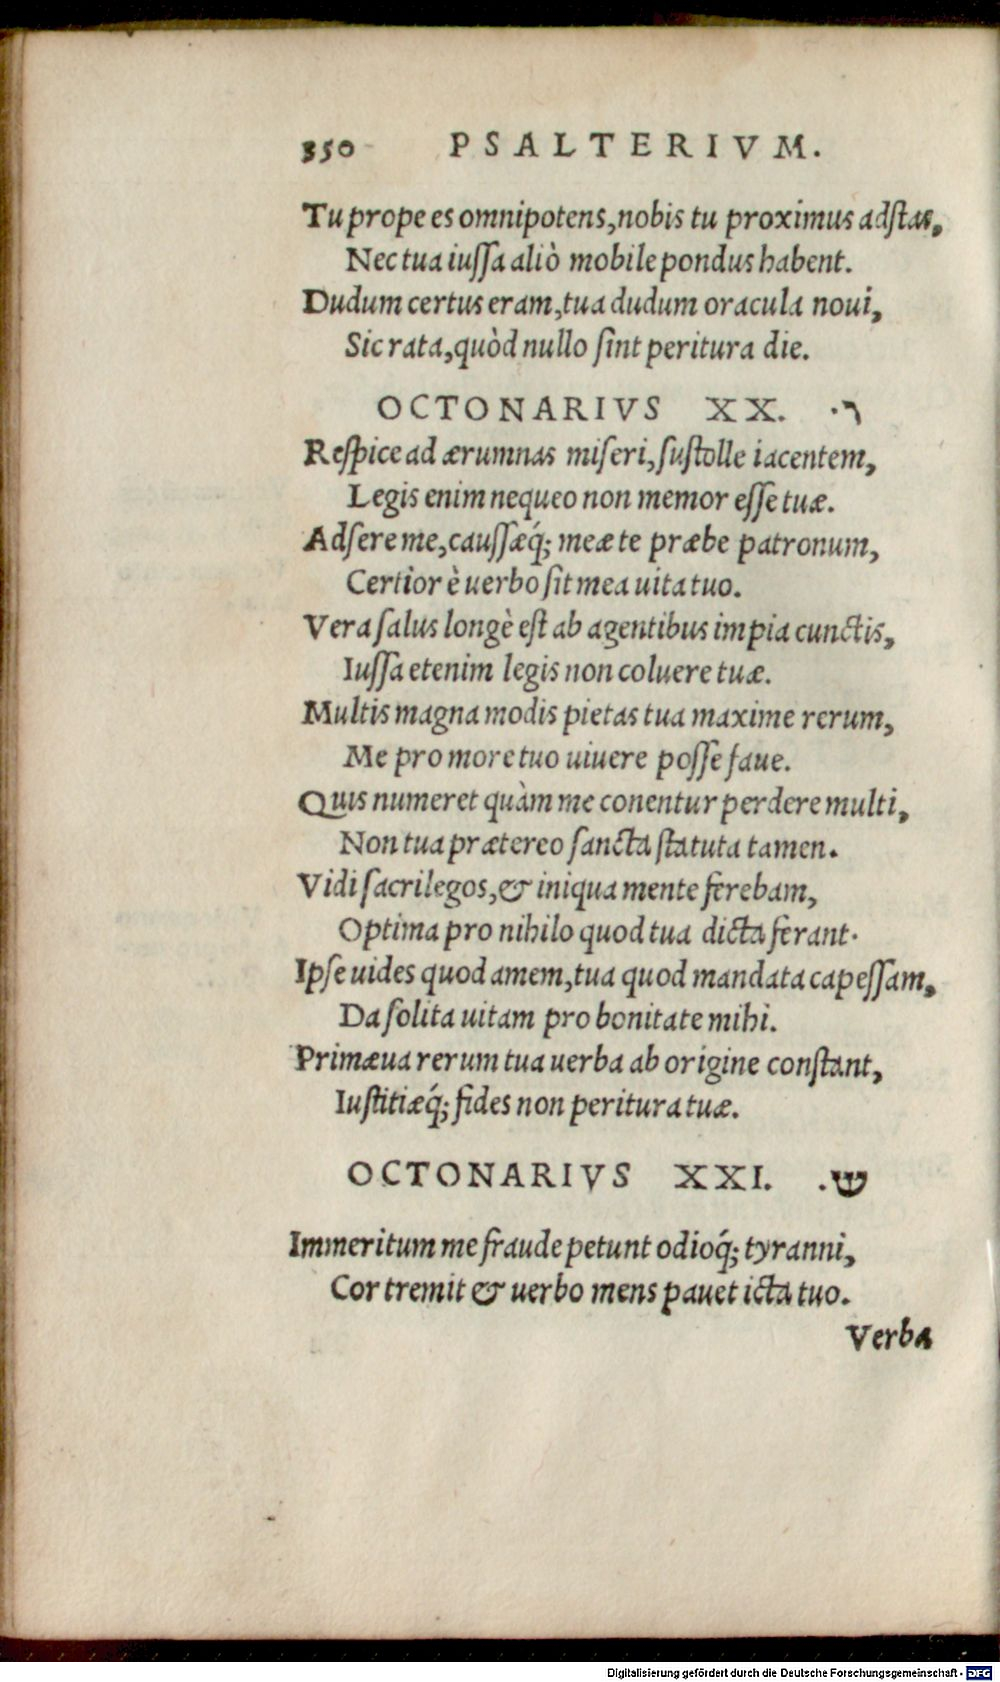 350 PSALTERIVM.
Tu prope es omnipotens, nobis tu proximus adſtas,
Nec tua iuſſa aliò mobile pondus habent.
Dudum certus eram, tua dudum oracula noui,
Sic rata, quòd nullo ſint peritura die.
OCTONARIVS XX. ר.
Reſpice ad ærumnas miſeri, ſuſtolle iacentem,
Legis enim nequeo non memor eſſe tuæ.
Adſere me, cauſſæq́; meæ te præbe patronum,
Certior è uerbo ſit mea uita tuo.
Vera ſalus longè eſt ab agentibus impia cunctis,
Iuſſa etenim legis non coluere tuæ.
Multis magna modis pietas tua maxime rerum,
Me pro more tuo uiuere poſſe faue.
Quis numeret quàm me conentur perdere multi,
Non tua prætereo ſancta ſtatuta tamen.
Vidi ſacrilegos, & iniqua mente ferebam,
Optima pro nihilo quod tua dicta ferant.
Ipſe uides quod amem, tua quod mandata capeſſam,
Da ſolita uitam pro bonitate mihi.
Primæua rerum tua uerba ab origine conſtant,
Iuſtitiæq́; fides non peritura tuæ.
OCTONARIVS XXI. ש.
Immeritum me fraude petunt odioq́; tyranni,
Cor tremit & uerbo mens pauet icta tuo.
Verba
Digitalisierung gefördert durch die Deutsche Forschungsgemeinschaft - DFG